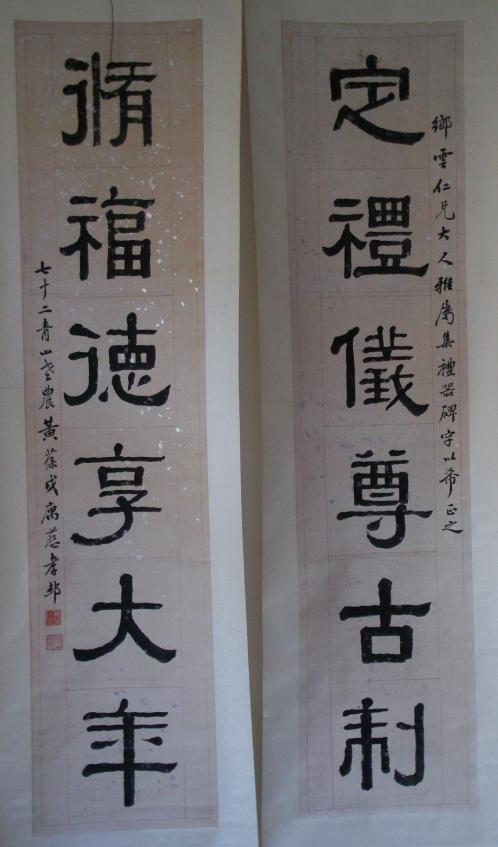 鄉雲仁兄大人雅屬集禮器碑字以希正之
定禮儀尊古制
脩福德享大年
七十二青山老農黃葆戉寓慈孝邨